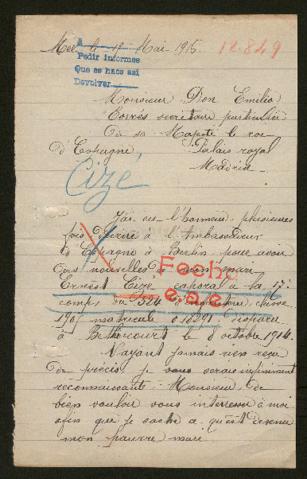 le 17 Mai 1915. 12.849
Pedir informes
Que se hace asi
Devolver
Monsieur Don Emilio
secrétaire particulier
De sa Majesté le roi
d'Espagne, Palais royal
Madrid
Cize
J'ai eu l'honneur plusieurs
fois d'écrire à l'Ambassadeur
d'Espagne à Berlin pour avoir
des nouvelles de mon mari
Ernest Cize caporal à la 17e
comp. classe
matricule disparu
à le octobre 1914.
N'ayant jamais rien reçu
de précis, je vous serais infiniment
reconnaissante Monsieur de
bien vouloir vous intéresser à moi
afin que je sache ce qu'est devenu
mon pauvre mari